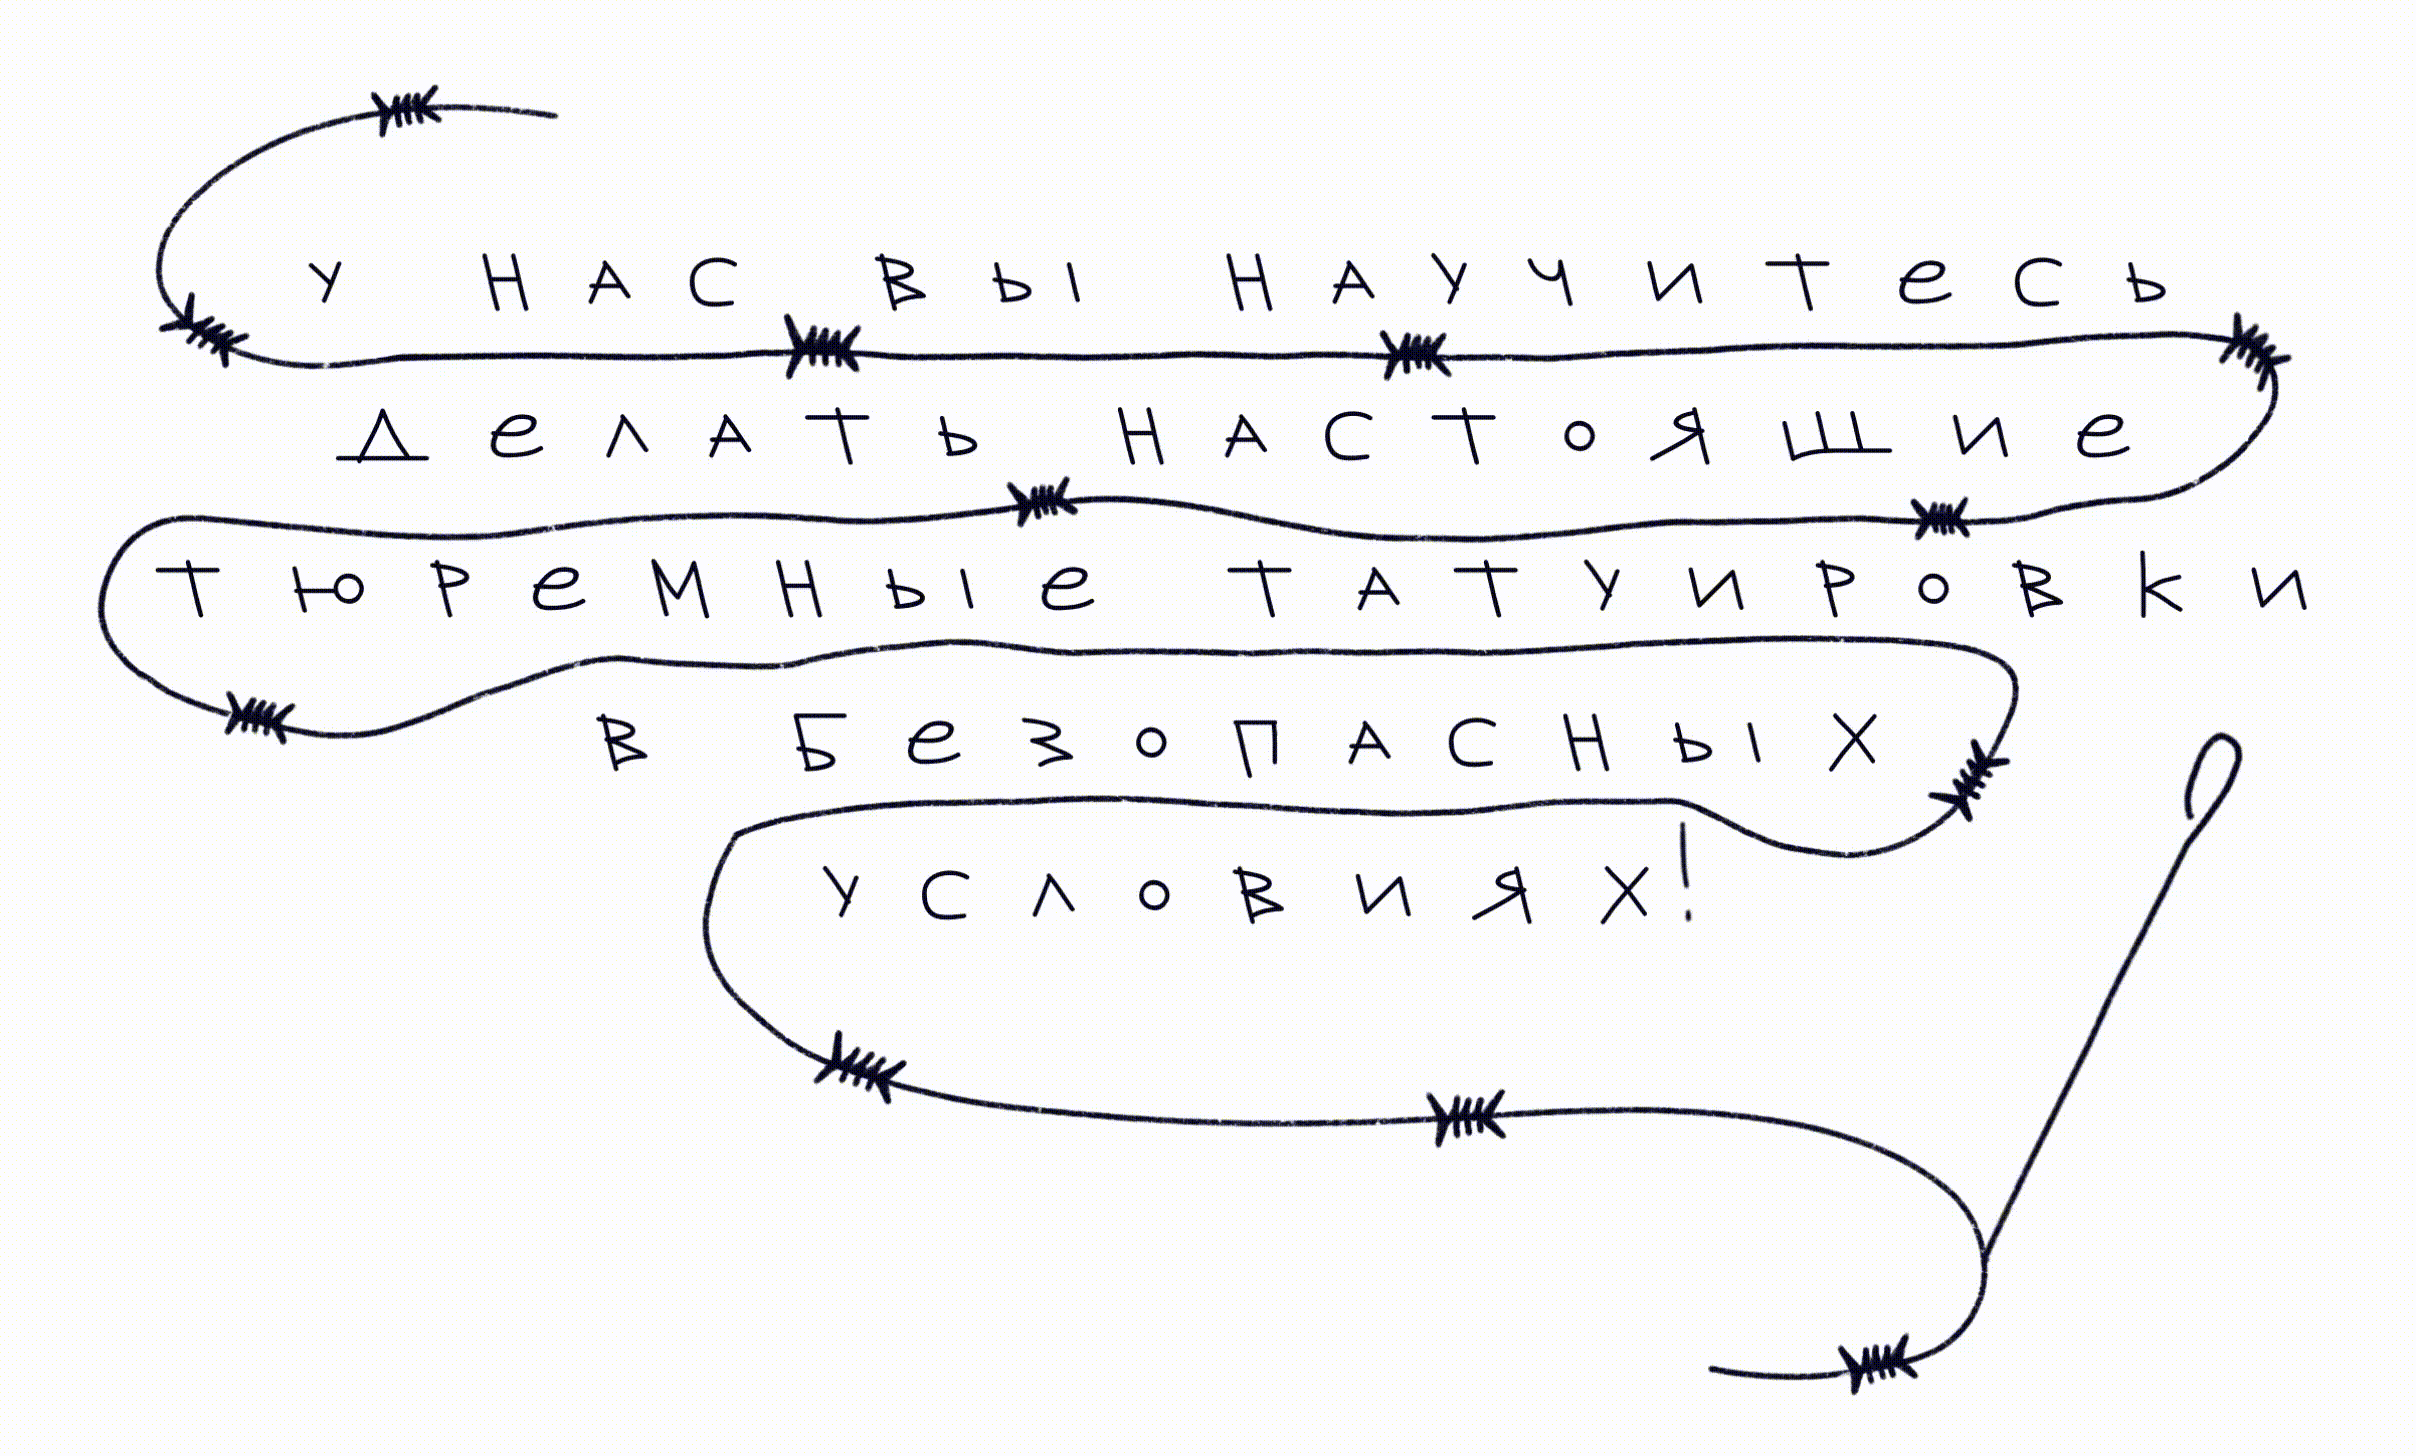 У НАС ВЫ НАУЧИТЕСЬ
ДЕЛАТЬ НАСТОЯШИЕ
ТЮРЕМНЫЕ ТАТУИРОВКИ
В БЕЗОПАСНЫХ
УСЛОВИЯХ!